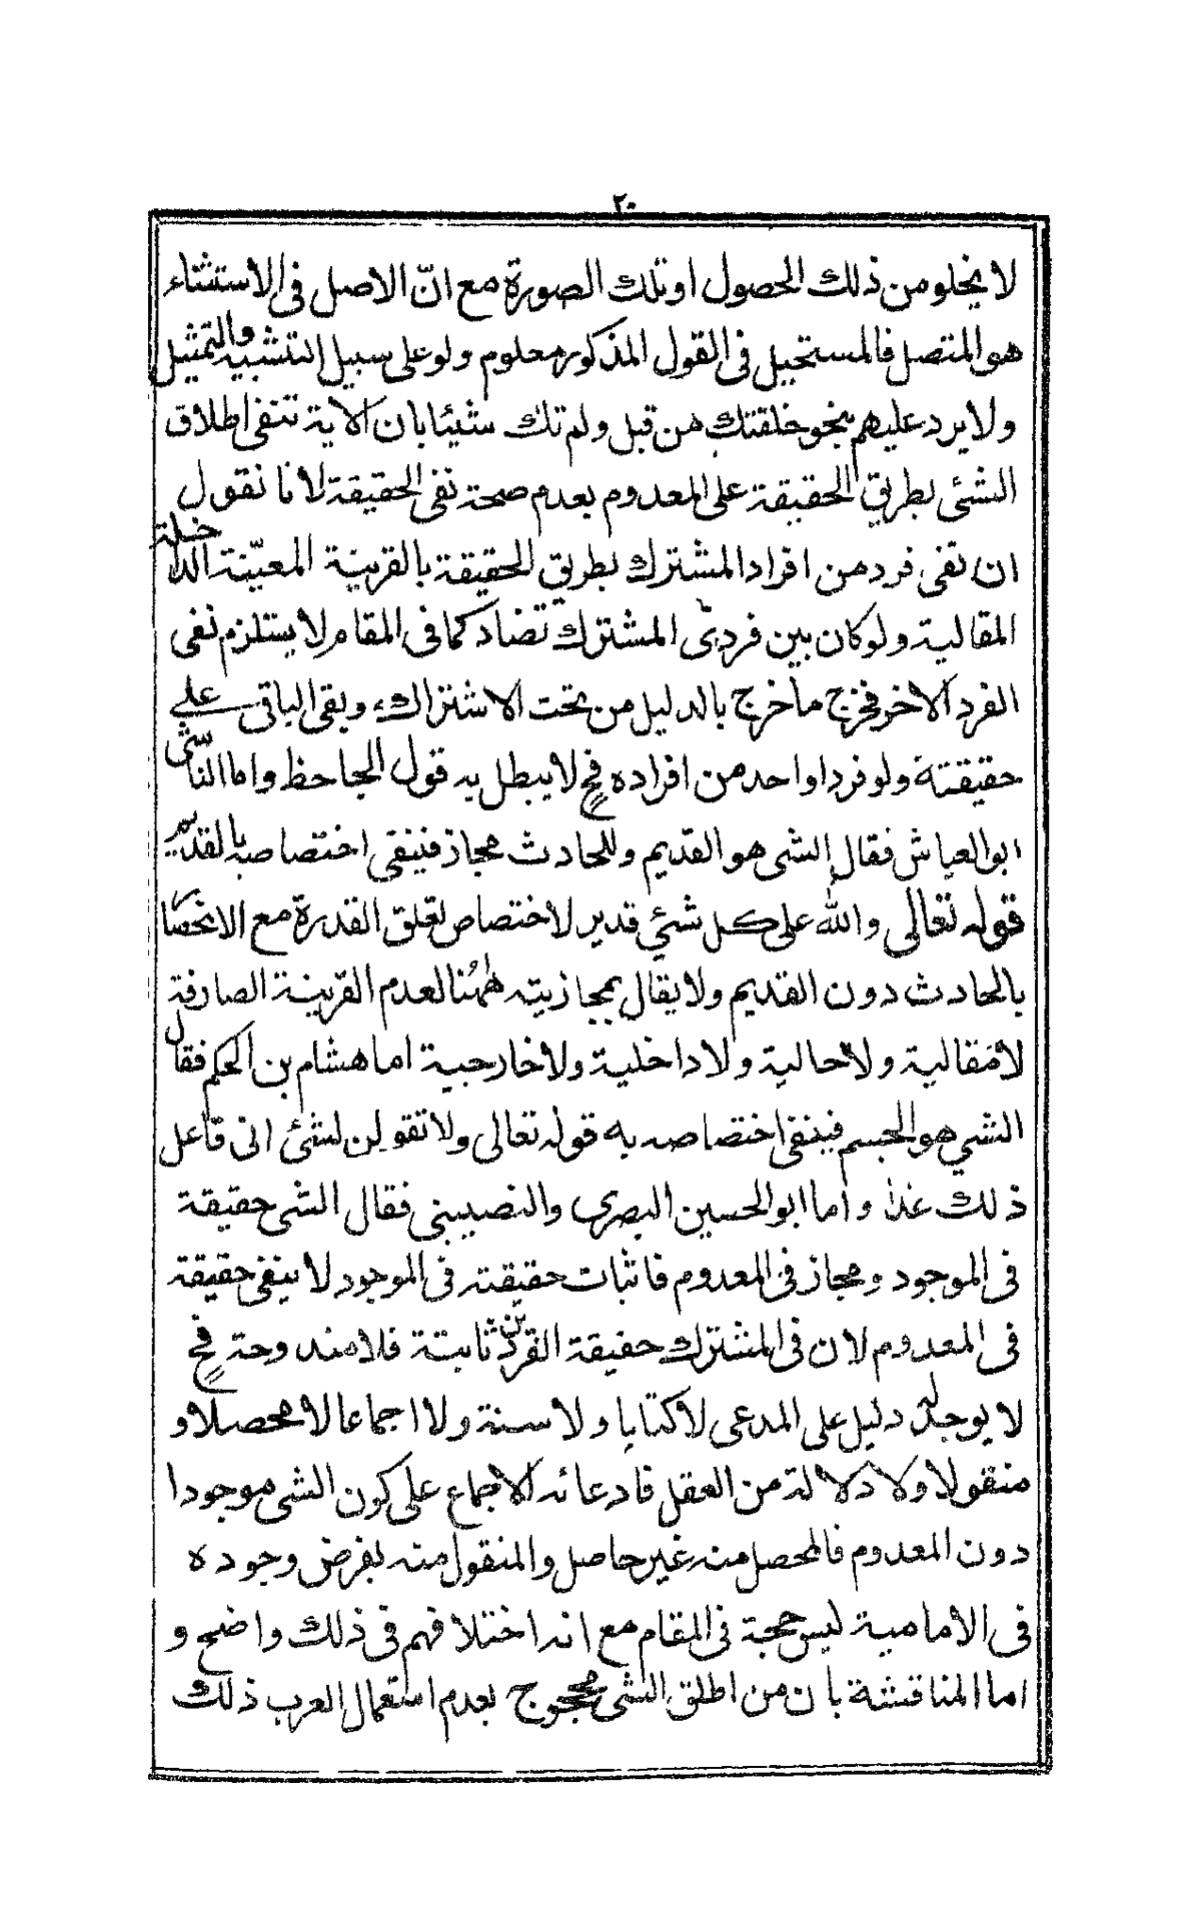 ٢٠
لا يخلو من ذلك الحصول او تلك الصورة مع انّ الاصل فى الاستثناء
هو المتصل فالمستحيل فى القول المذكور معلوم ولو على سبيل التشبيه والتمثيل
ولا يرد عليهم بنحو خلقتك من قبل ولم تك شيئا بان الآية تنفى اطلاق
الشئ بطريق الحقيقة على المعدوم بعدم صحة نفى الحقيقة لانا نقول
ان نفى فرد من افراد المشترك بطريق الحقيقة بالقرينة المعيّنة الداخلة
المقالية ولو كان بين فردىّ المشترك تضاد كما فى المقام لا يستلزم نفى
الفرد الاخر فخرج ما خرج بالدليل من تحت الاشتراك وبقى الباقى على
حقيقتة ولو فردا واحد من افراده فح لا يبطل به قول الجاحظ واما الناشى
ابو العباش فقال الشى هو القديم وللحادث مجاز فينفى اختصاصه بالقديم
قوله تعالى والله على كل شئ قدير لاختصاص تعلق القدرة مع الانحصار
بالحادث دون القديم ولا يقال بمجازيته ههُنا لعدم القرينة الصارفة
لا مَقالية ولا حالية ولا داخلية ولا خارجية اما هشام بن الحكم فقال
الشي هو الجسم فينفى اختصاصه به قوله تعالى ولا تقولن لشئ انى فاعل
ذلك غذا واما ابو الحسين البصرى والنصيبنى فقال الشى حقيقة
فى الموجود ومجاز فى المعدوم فاثبات حقيقته فى الموجود لا ينفى حقيقة
فى المعدوم لان فى المشترك حقيقة الفردين ثابتة فلا مندوحة فح
لا يوجد له دليل على المدعى لا كتابا ولا سنة ولا اجماعا لا محصلا و
منقولا ولا دلالة من العقل فادعائه الاجماع على كون الشى موجودا
دون المعدوم فالمحصل منه غير حاصل والمنقول منه بفرض وجوده
فى الامامية ليس حجة فى المقام مع انه اختلافهم فى ذلك واضح و
اما المناقشة بان من اطلق الشى محجوج بعدم استعمال العرب ذلك